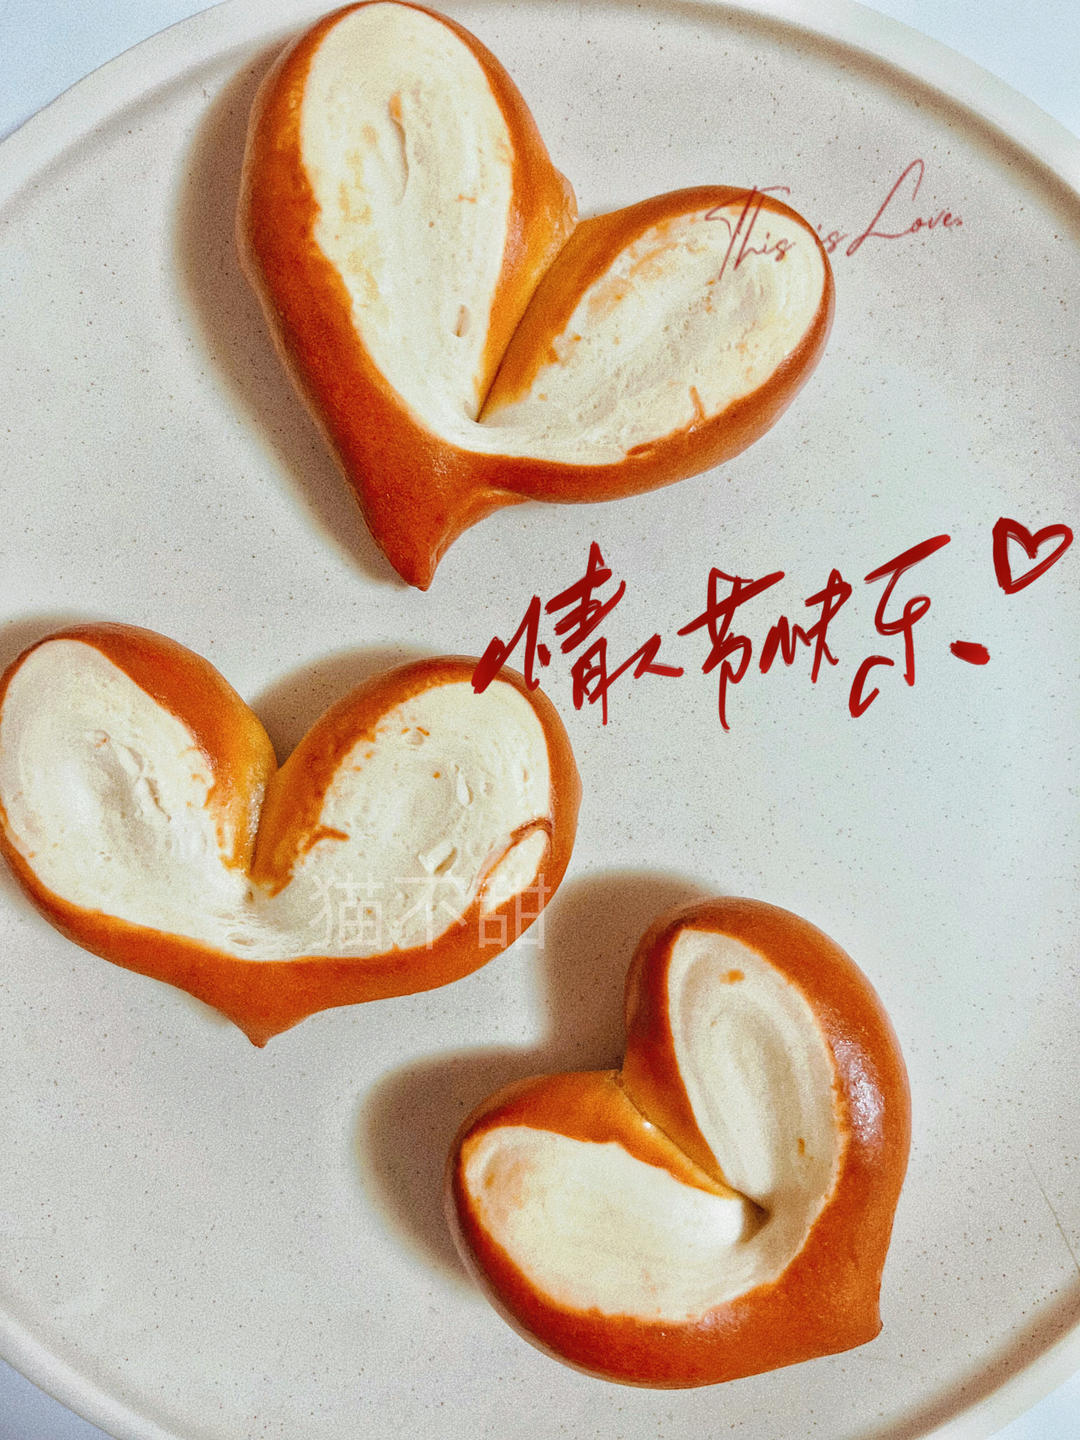 This is Love.
情人节快乐、♡
猫不甜